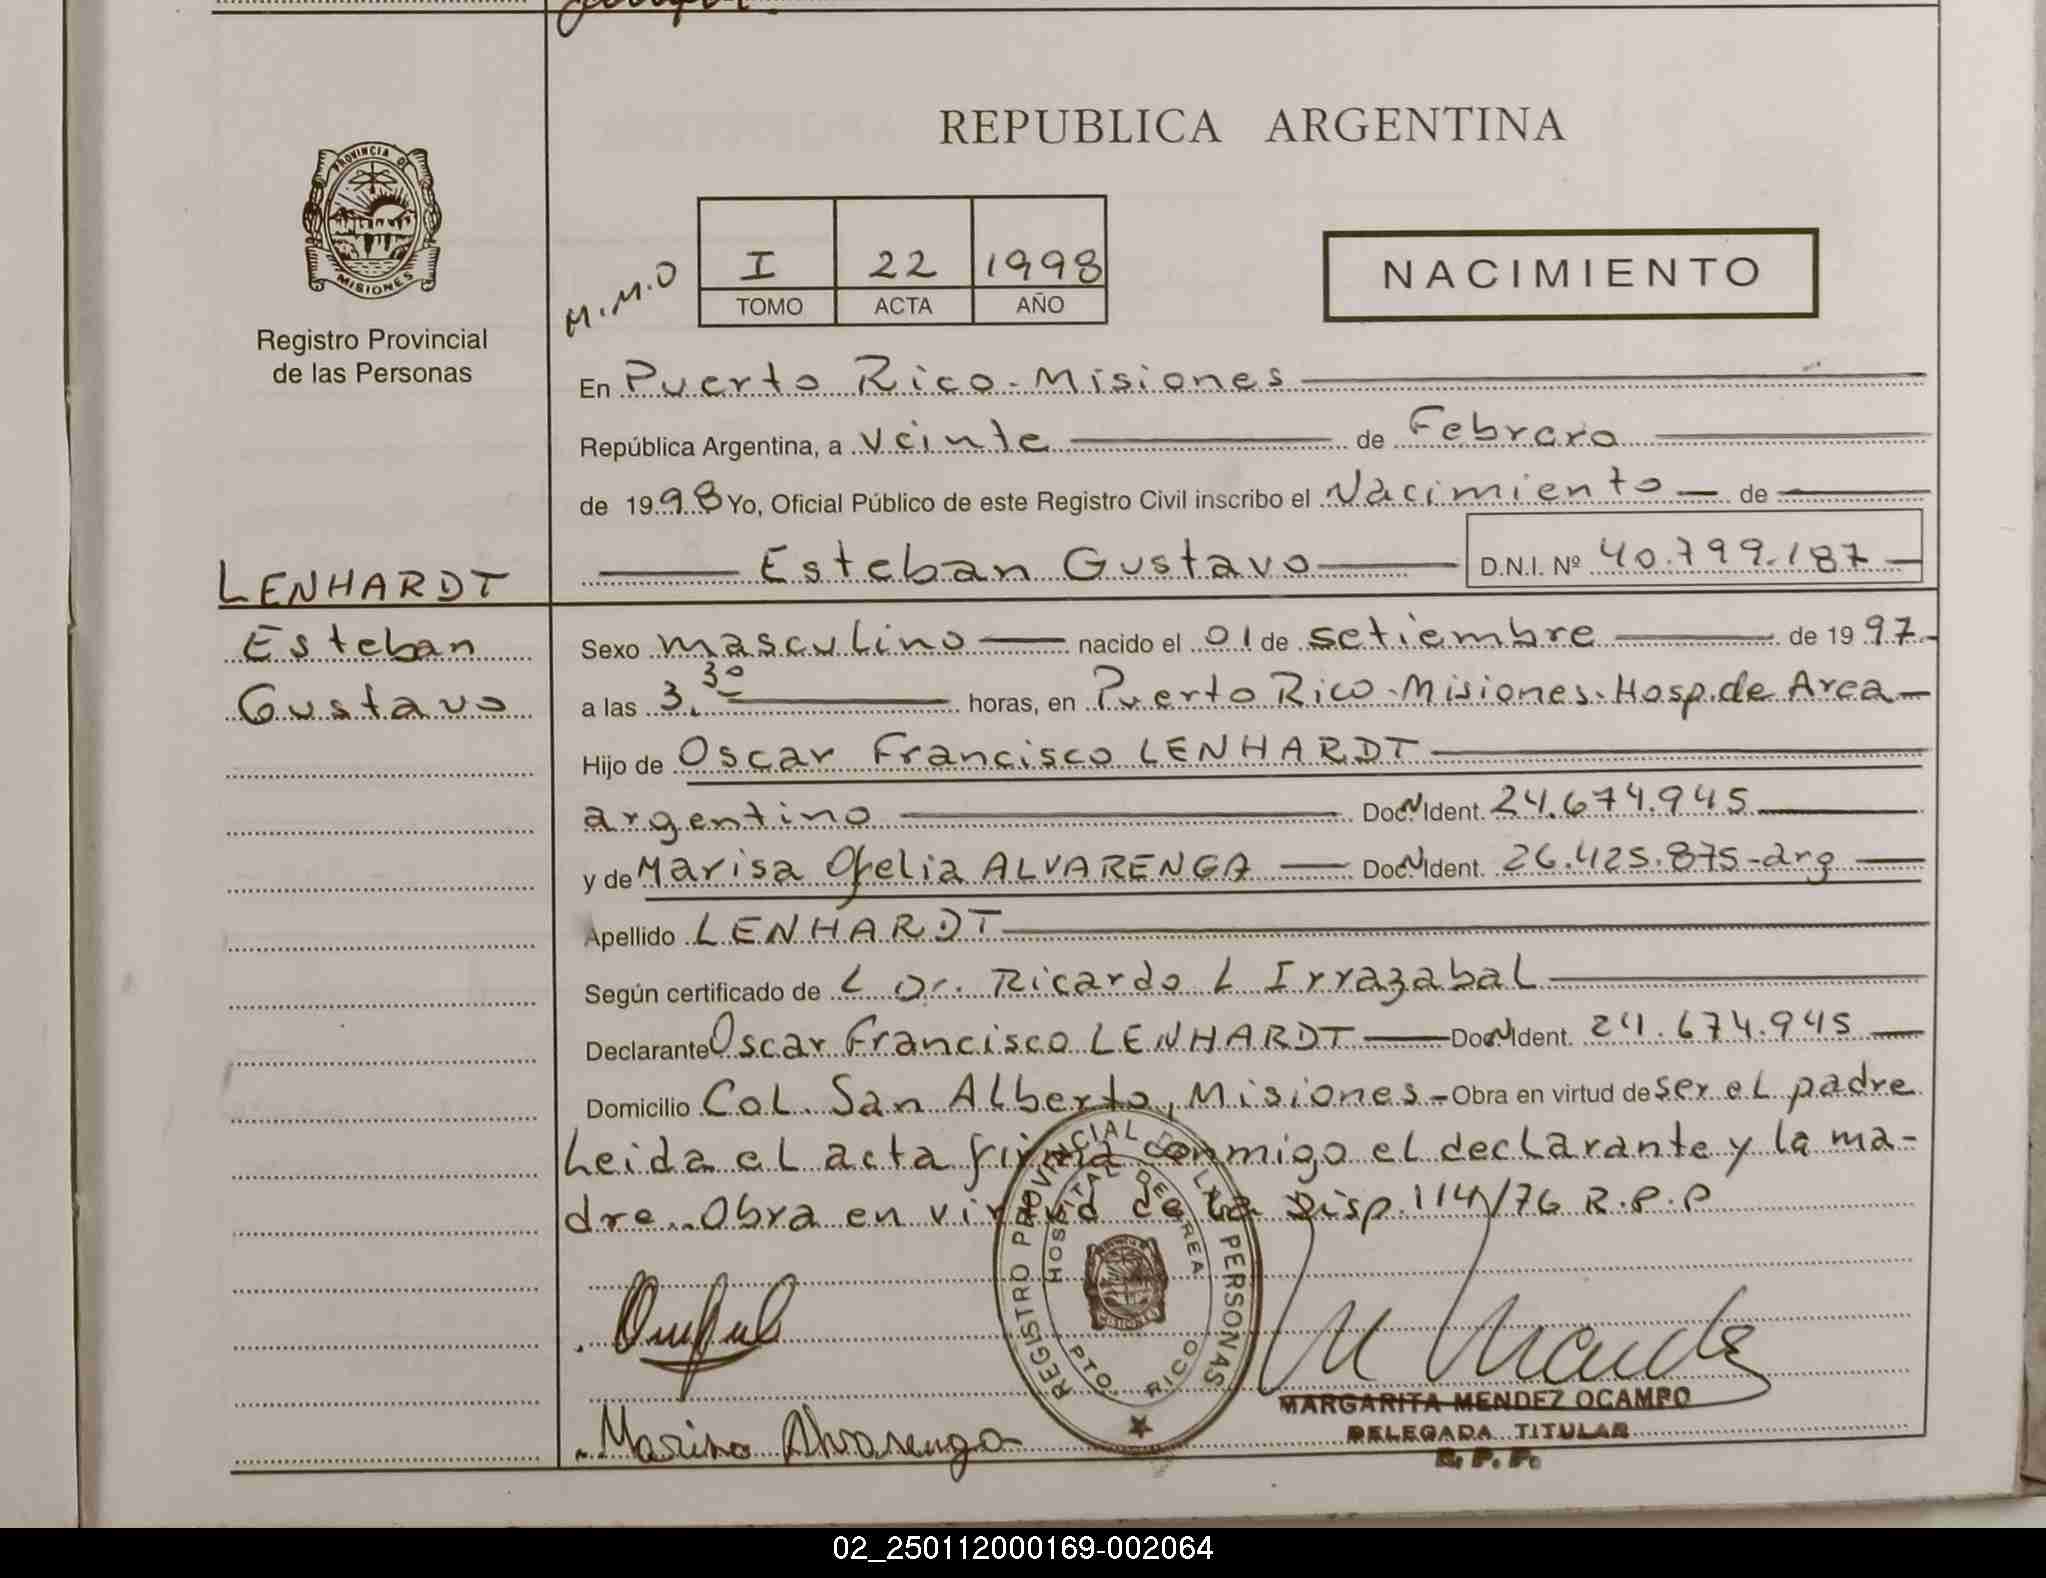 REPUBLICA ARGENTINA
PROVINCIA DE
MISIONES
Registro Provincial
de las Personas
M.M.O
I 22 1998
TOMO ACTA AÑO
NACIMIENTO
En Puerto Rico-Misiones
República Argentina, a veinte de Febrero
de 1998 Yo, Oficial Público de este Registro Civil inscribo el Nacimiento de
Esteban Gustavo D.N.I. Nº 40.799.187
LENHARDT
Esteban
Gustavo
Sexo masculino nacido el 01 de setiembre de 1997
a las 3.30 horas, en Puerto Rico-Misiones-Hosp.de Area
Hijo de Oscar Francisco LENHARDT
argentino Doc. N Ident. 24.674.945
y de Marisa Ofelia ALVARENGA Doc. N Ident. 26.425.875-arg
Apellido LENHARDT
Según certificado de L Dr. Ricardo L Irrazabal
Declarante Oscar Francisco LENHARDT Doc. N Ident. 24.674.945
Domicilio Col. San Alberto, Misiones - Obra en virtud de ser el padre
Leida el acta firma conmigo el declarante y la ma-
dre. Obra en virtud de la Disp. 114/76 R.P.P
REGISTRO PROVINCIAL DE LAS PERSONAS
HOSPITAL DE AREA
PTO. RICO
Alvarenga
MARGARITA MENDEZ OCAMPO
DELEGADA TITULAR
R.P.P.
02_250112000169-002064